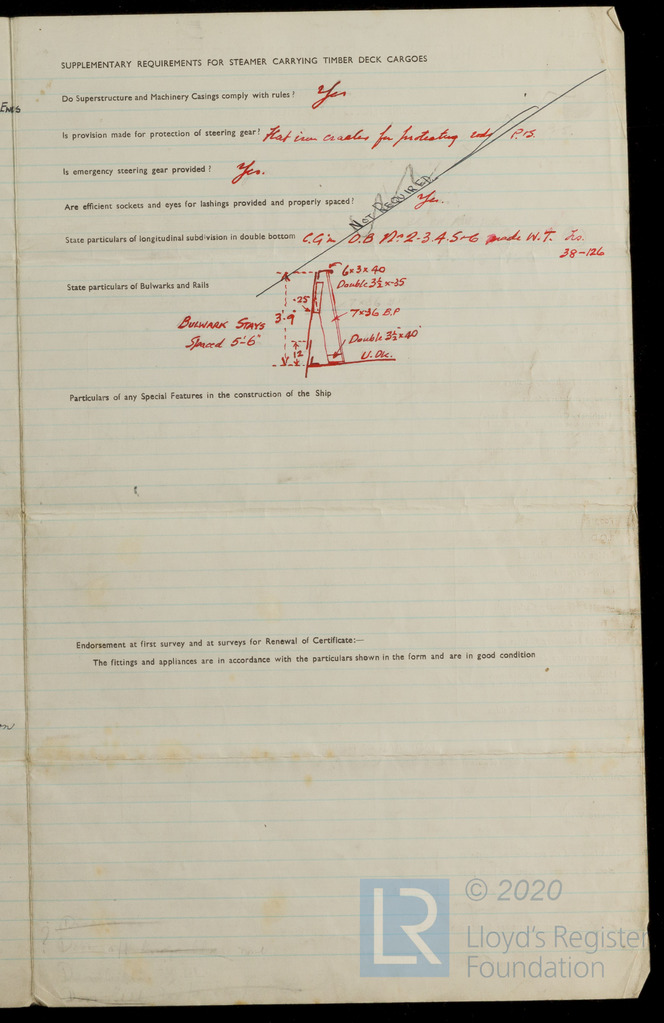 SUPPLEMENTARY REQUIREMENTS FOR STEAMER CARRYING TIMBER DECK CARGOES
ENDS
Do Superstructure and Machinery Casings comply with rules? Yes
Is provision made for protection of steering gear? Flat iron cradles for protecting rods P.&S.
Is emergency steering gear provided? Yes.
NOT REQUIRED
Are efficient sockets and eyes for lashings provided and properly spaced? Yes.
State particulars of longitudinal subdivision in double bottom C.G in D.B Nos 2-3.4.5+6 made W.T.
38-126
State particulars of Bulwarks and Rails
6x3x40
Double 3½x.35
.25
BULWARK STAYS 3'.9" 7x36 B.P
Spaced 5'-6" Double 3½"x40"
12 U.Dk.
Particulars of any Special Features in the construction of the Ship
Endorsement at first survey and at surveys for Renewal of Certificate:—
The fittings and appliances are in accordance with the particulars shown in the form and are in good condition
LR
© 2020
Lloyd's Register
Foundation